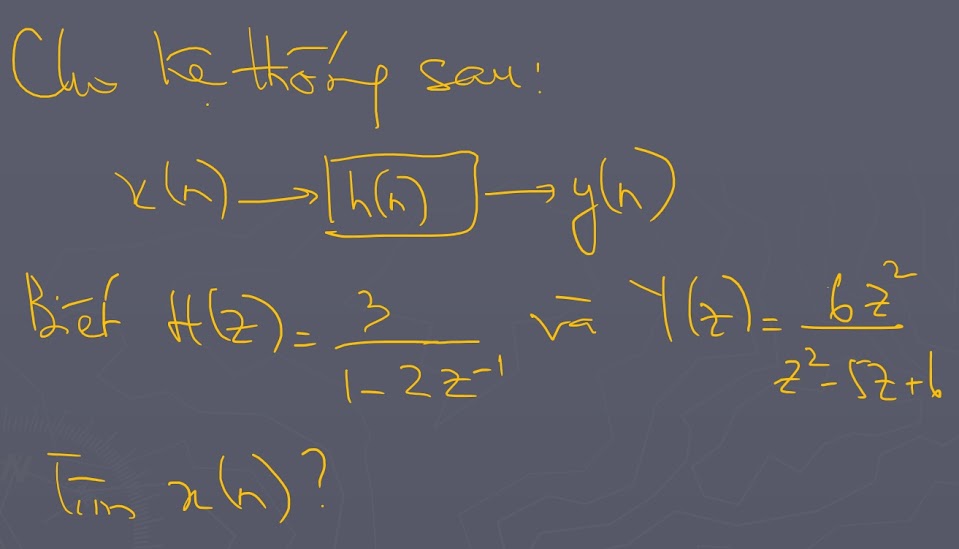 Cho hệ thống sau:
x(n) → h(n) → y(n)
Biết H(z) = 3 / (1 - 2z⁻¹) và Y(z) = 6z² / (z² - 5z + 6)
Tìm x(n)?